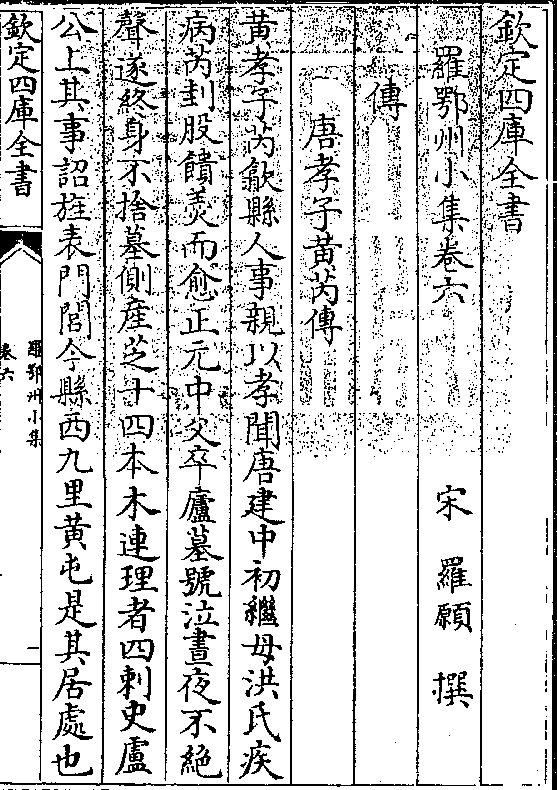 欽定四庫全書
羅鄂州小集卷六
宋　羅願　撰
傳
唐孝子黄芮傳
黄孝子芮歙縣人事親以孝聞唐建中初繼母洪氏疾
病芮刲股饋羙而愈正元中父卒廬墓號泣晝夜不絶
聲逐終身不捨墓側産芝十四本木連理者四刺史盧
公上其事詔旌表門閭今縣西九里黄屯是其居處也
欽定四庫全書
羅鄂州小集
卷六
一